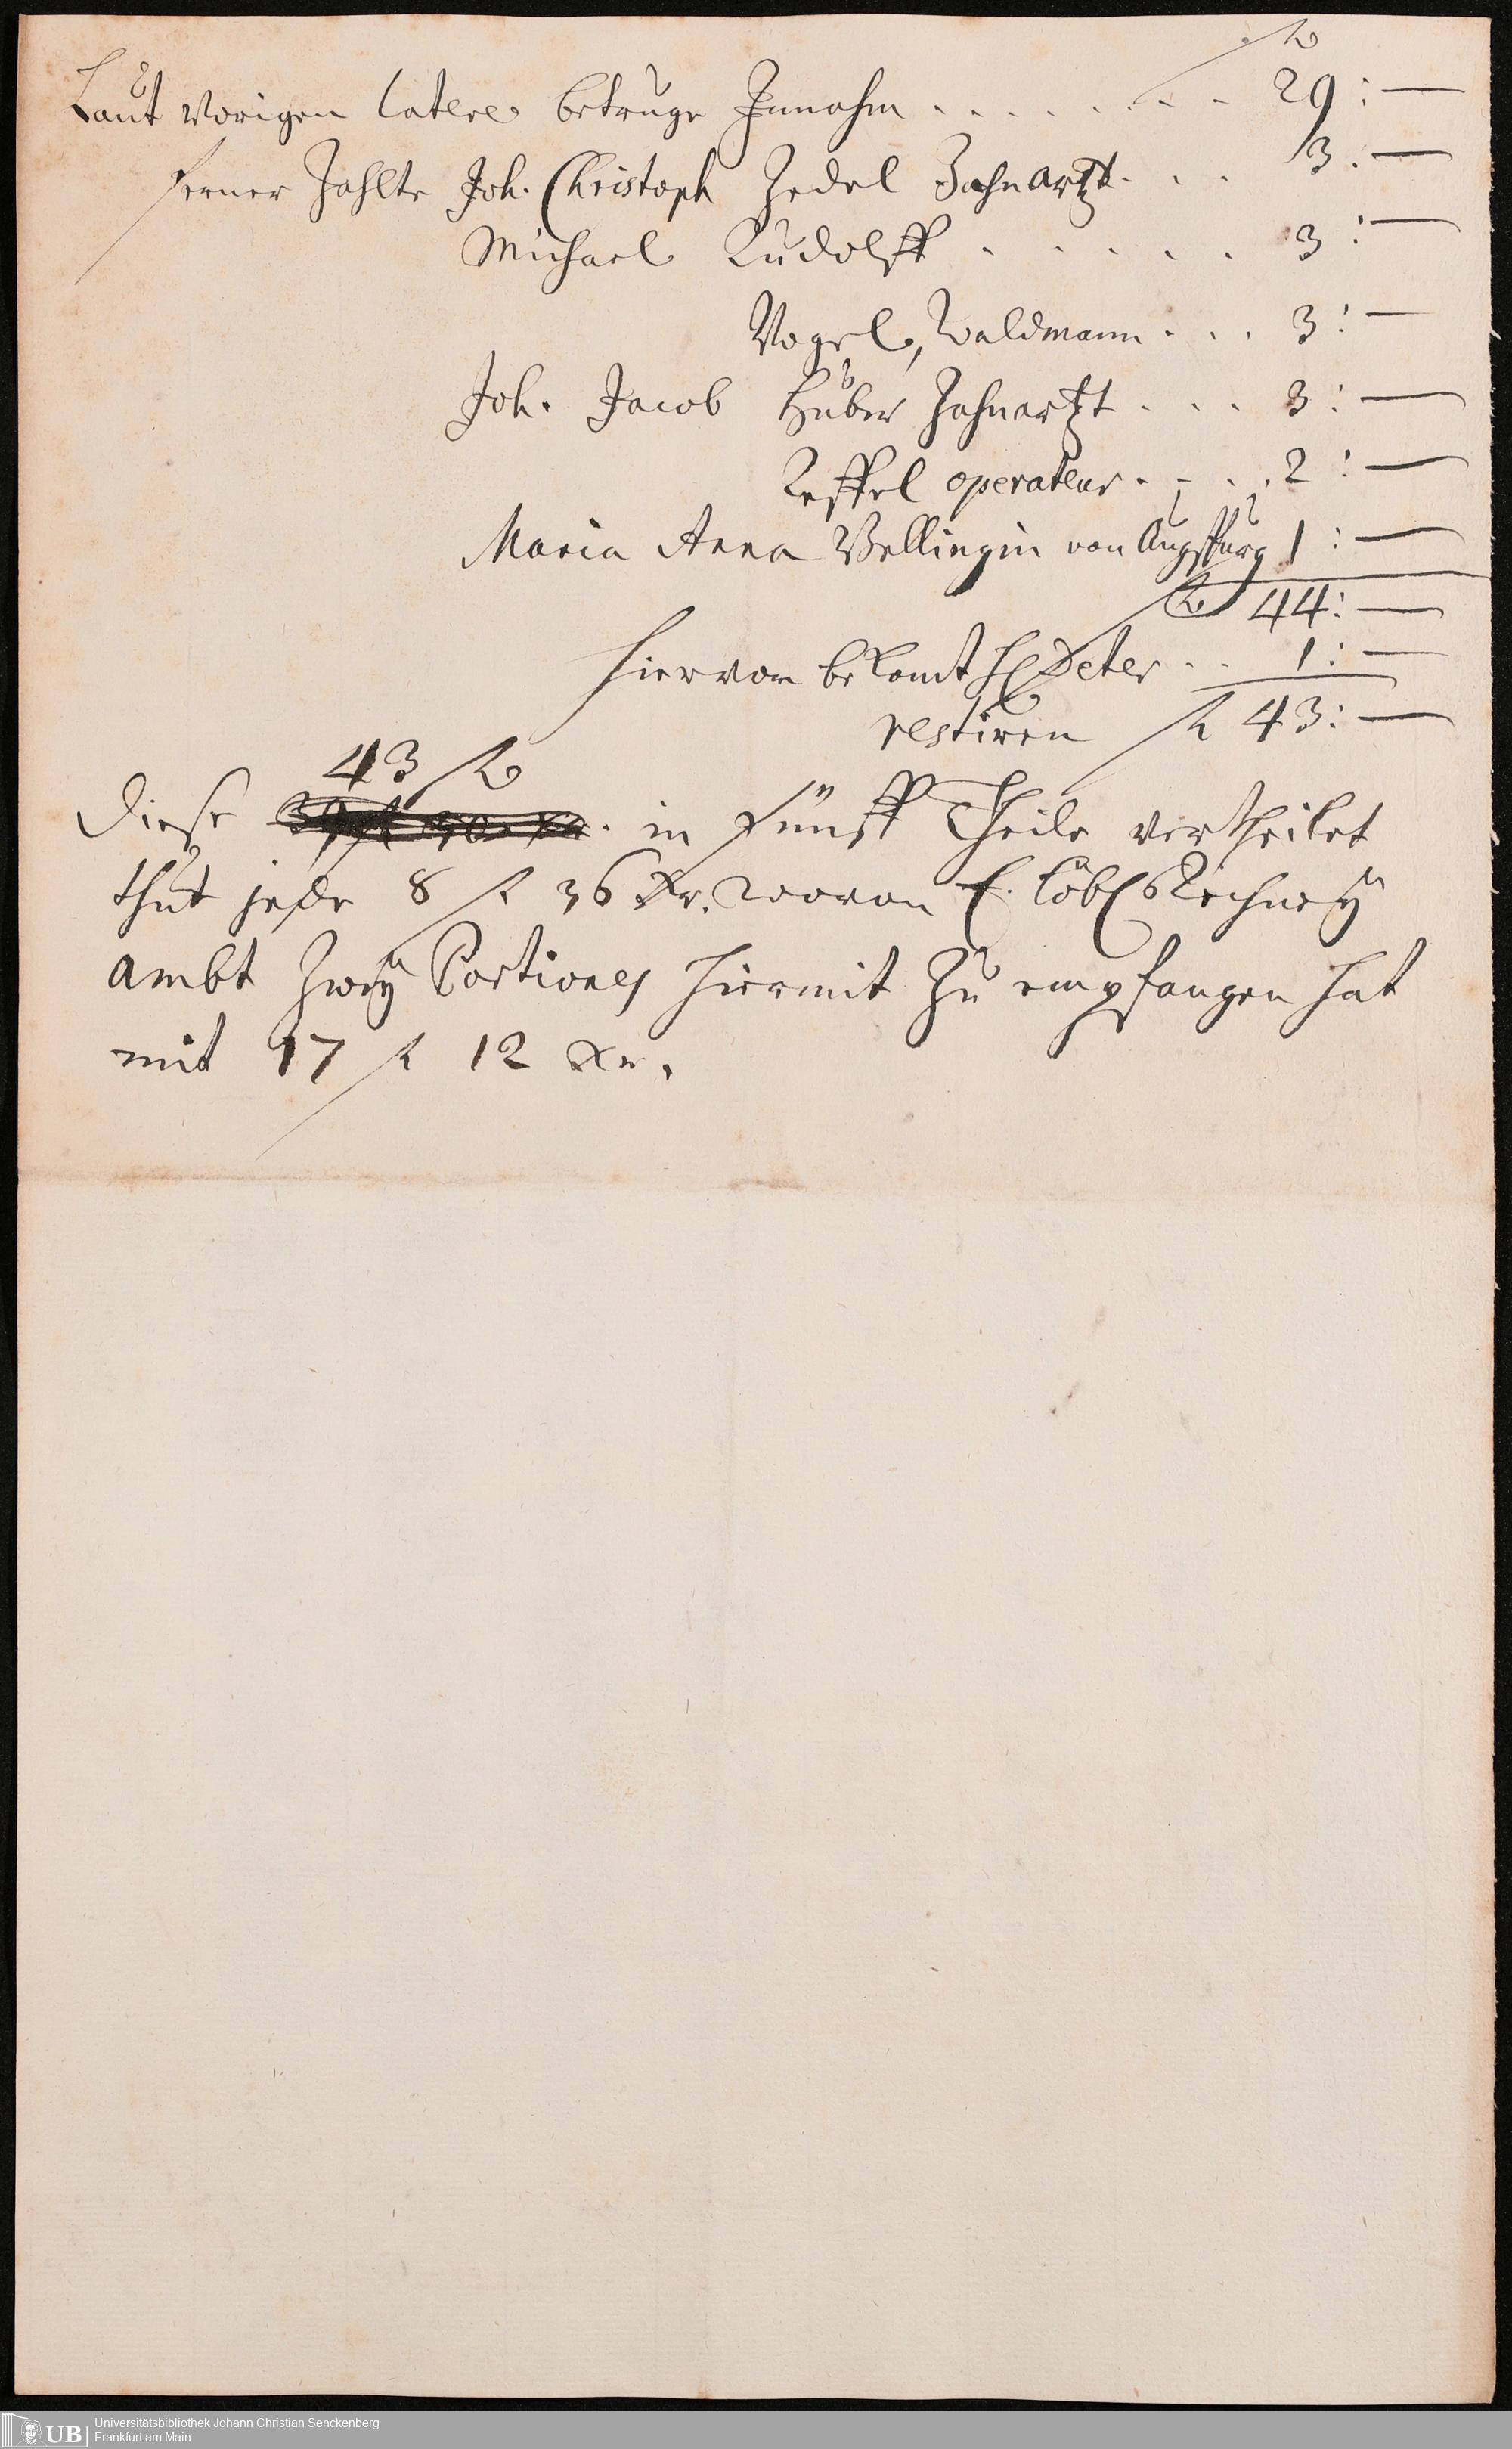 fl
Laut vorigen latere betruge Innahm . . . . . . . 29 : —
ferner Zahlte Joh. Christoph Zedel Zahnartzt . . . 3 : —
Michael Rudolff . . . . . 3 : —
Vogel, Waldmann . . . 3 : —
Joh. Jacob Huber Zahnartzt . . . 3 : —
Keffel operateur . . . . 2 : —
Maria Anna Vellingin von Augspurg 1 : —
fl 44 : —
hiervon bekomt H Peter . . 1 : —
restiren fl 43 : —
43 fl
Diese in fünff Theile vertheilet
thut jede 8 fl 36 Xr. wovon E. Löbl Rechney
ambt Zwey Portiones hiermit Zu empfangen hat
mit 17 fl 12 Xr.
UB Universitätsbibliothek Johann Christian Senckenberg
Frankfurt am Main